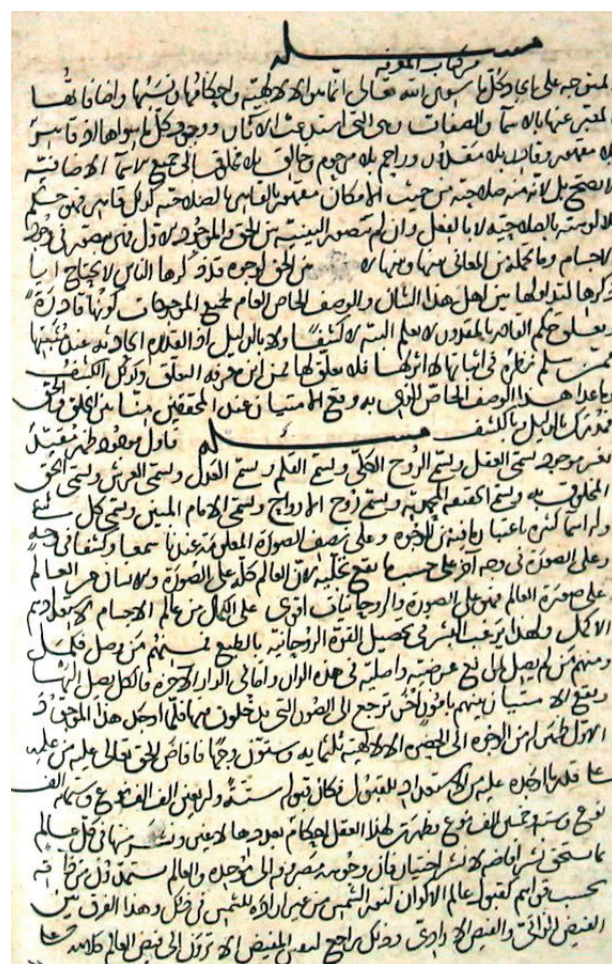 مسـلـه
من كتاب المعرفة
المتوجه على ايجاد كل ما سوى الله تعالى انما هو الالوهية واحكامها ونسبها واضافاتها
المعبر عنها بالاسماء والصفات وهى التى استدعت الاثار ووجود كل ما سواها اذ قاهر
بلا مقهور وقادر بلا مقدور وراحم بلا مرحوم وخالق بلا مخلوق الى جميع الاسماء الاضافية
لا تصح بل لا من صلاحية من حيث الامكان مقهور بالقاهر بالصلاحية
للالوهية بالصلاحية لا بالفعل وان لم تتصور البينية بين الحق والموجود الاول
الاجسام وما تحمله من المعانى منها من الحق لوجوه قد ذكرها الناس لا يحتاج
ذكرها لتداولها بين اهل هذا الشان والوصف الخاص العام لجميع الموجودات كونها قادرة
وتعلق حكم القادر بالمقدور لا يعلم البتة لا كشفا ولا بالدليل اذ القدرة الحادثة عند مثبتها
ممن سلم نظره فى اثباتها لا اثر لها فلا تعلق لها فمن اين يعرف التعلق وكذلك الكشف
ما عدا هذا الوصف الخاص الذى به وقع الامتياز عند المحققين منا بين الخلق والحق
فمدرك بالدليل وبالكشف مسـلـه فاول موجود ظهر مقيد
فقير موجود يسمى العقل ويسمى الروح الكلى ويسمى القلم ويسمى العدل ويسمى العرش ويسمى الحق
المخلوق به ويسمى الحقيقة المحمدية ويسمى روح الارواح ويسمى الامام المبين ويسمى كل شئ
وله اسماء كثيرة باعتبار ما فيه من الوجوه وعلى نصف الصورة المعلومة عندنا سمعا وكشفا فى وجه
وعلى الصورة فى وجه آخر على حسب ما يقع تجليه لان العالم كله على الصورة والانسان هو العالم
على صورة العالم فهو على الصورة والروحانيات اقوى على الكمال من عالم الاجسام لاستعدادهم
الاكمل ولهذا يرغب البشر فى تحصيل القوة الروحانية بالطبع فمنهم من وصل فكمل
ومنهم من لم يصل لموانع عرضية واصلية فى هذه الدار واما فى الدار الآخرة فالكل يصل اليها
ويقع الامتياز بينهم بامور أخر ترجع الى الصور التى يدخلون فيها فلما اوجد هذا الموجود
الاول ظهر له من الوجوه الى الحضرة الالهية ثلثمايه وستون وجها فافاض الحق تعالى عليه من علمه
على قدر ما اوجده عليه من الاستعداد للقبول فكان قبوله ستة واربعين الف الف نوع وستمائة الف
نوع وستة وخمسين الف نوع فظهرت لهذا العقل احكام بعددها لا غير ونشر منها فى كل عالم
بما يستحقه نشر افاضة لا نشر اختيار فان وجوهه مصروفة الى موجده والعالم يستمدون من ذاته
بحسب قواهم كقبول عالم الاكوان لنور الشمس من غير ارادة للشمس فى ذلك وهذا الفرق بين
الفيض الذاتى والفيض الارادى وذلك راجع لنفس المفيض